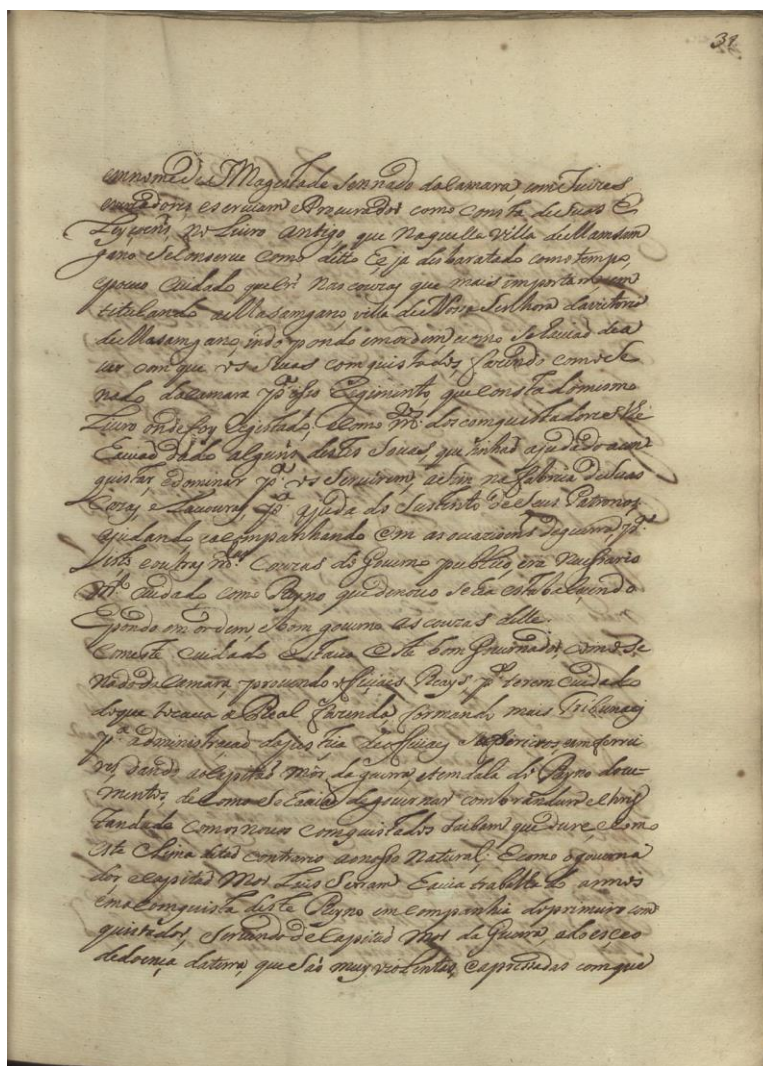 32
em nome de S. Magestade Sennado da Camara, com Juizes
vereadores, escrivam e Procurador como consta de suas E
Leyçoens, no Livro Antigo que Naquella Villa de Massam
gano Se Conserva como ditto he ja desbaratado como tempo,
e pouco Cuidado que há nas couzas que mais importam, em
titulando a Massamgano, villa de Nossa Senhora da victoria
de Massamgano, indo pondo em ordem como Se havia de a
var com que os Seus comquistadores fazendo com o Se
nado da Camara p.ª isso Regimento, que consta do mismo
Livro onde foy Registado, e como m.tos dos comquistadores lhe
havia dado alguns destes Sovas, que tinhaõ ajudado a con
quistar, e dominar p.ª os Servirem, acudir na fabrica de suas
Cazas, e Lavouras, p.ª ajuda do Sustento de Seus Patronos,
ajudando e acompanhando em as ocazioens de guerra, p.ª
isto e outras m.tas Couzas do Governo publico, era necessario
m.to cuidado como Reyno que de novo se hia estabalecendo
e pondo em ordem, e bom governo as couzas delle.
Com este cuidado estava este bom Governador, com o Se
nado da Camara, provendo officiais Reays p.ª terem cuidado
do que tocava a Real fazenda, formando mais Tribunaes
p.ª administraçaõ da justiça de officiaes Superiores, e inferrio
res, dando ao Capitaõ Mór, da guerra, e tendala do Reyno docu-
mentos, de como Se havia de governar com brandura e chris
tandade com os novos comquistados saibam que dure, e como
este Clima he taõ contrario ao nosso Natural; E como o governa
dor e Capitaõ Mor Luis Serram havia trabalhado annos
em a Comquista deste Reyno em Companhia do primeiro con
quistador, Servindo de Capitaõ Mor da Guerra, adoesceo
de doença da terra, que Saõ muy violentas, e apressadas com que